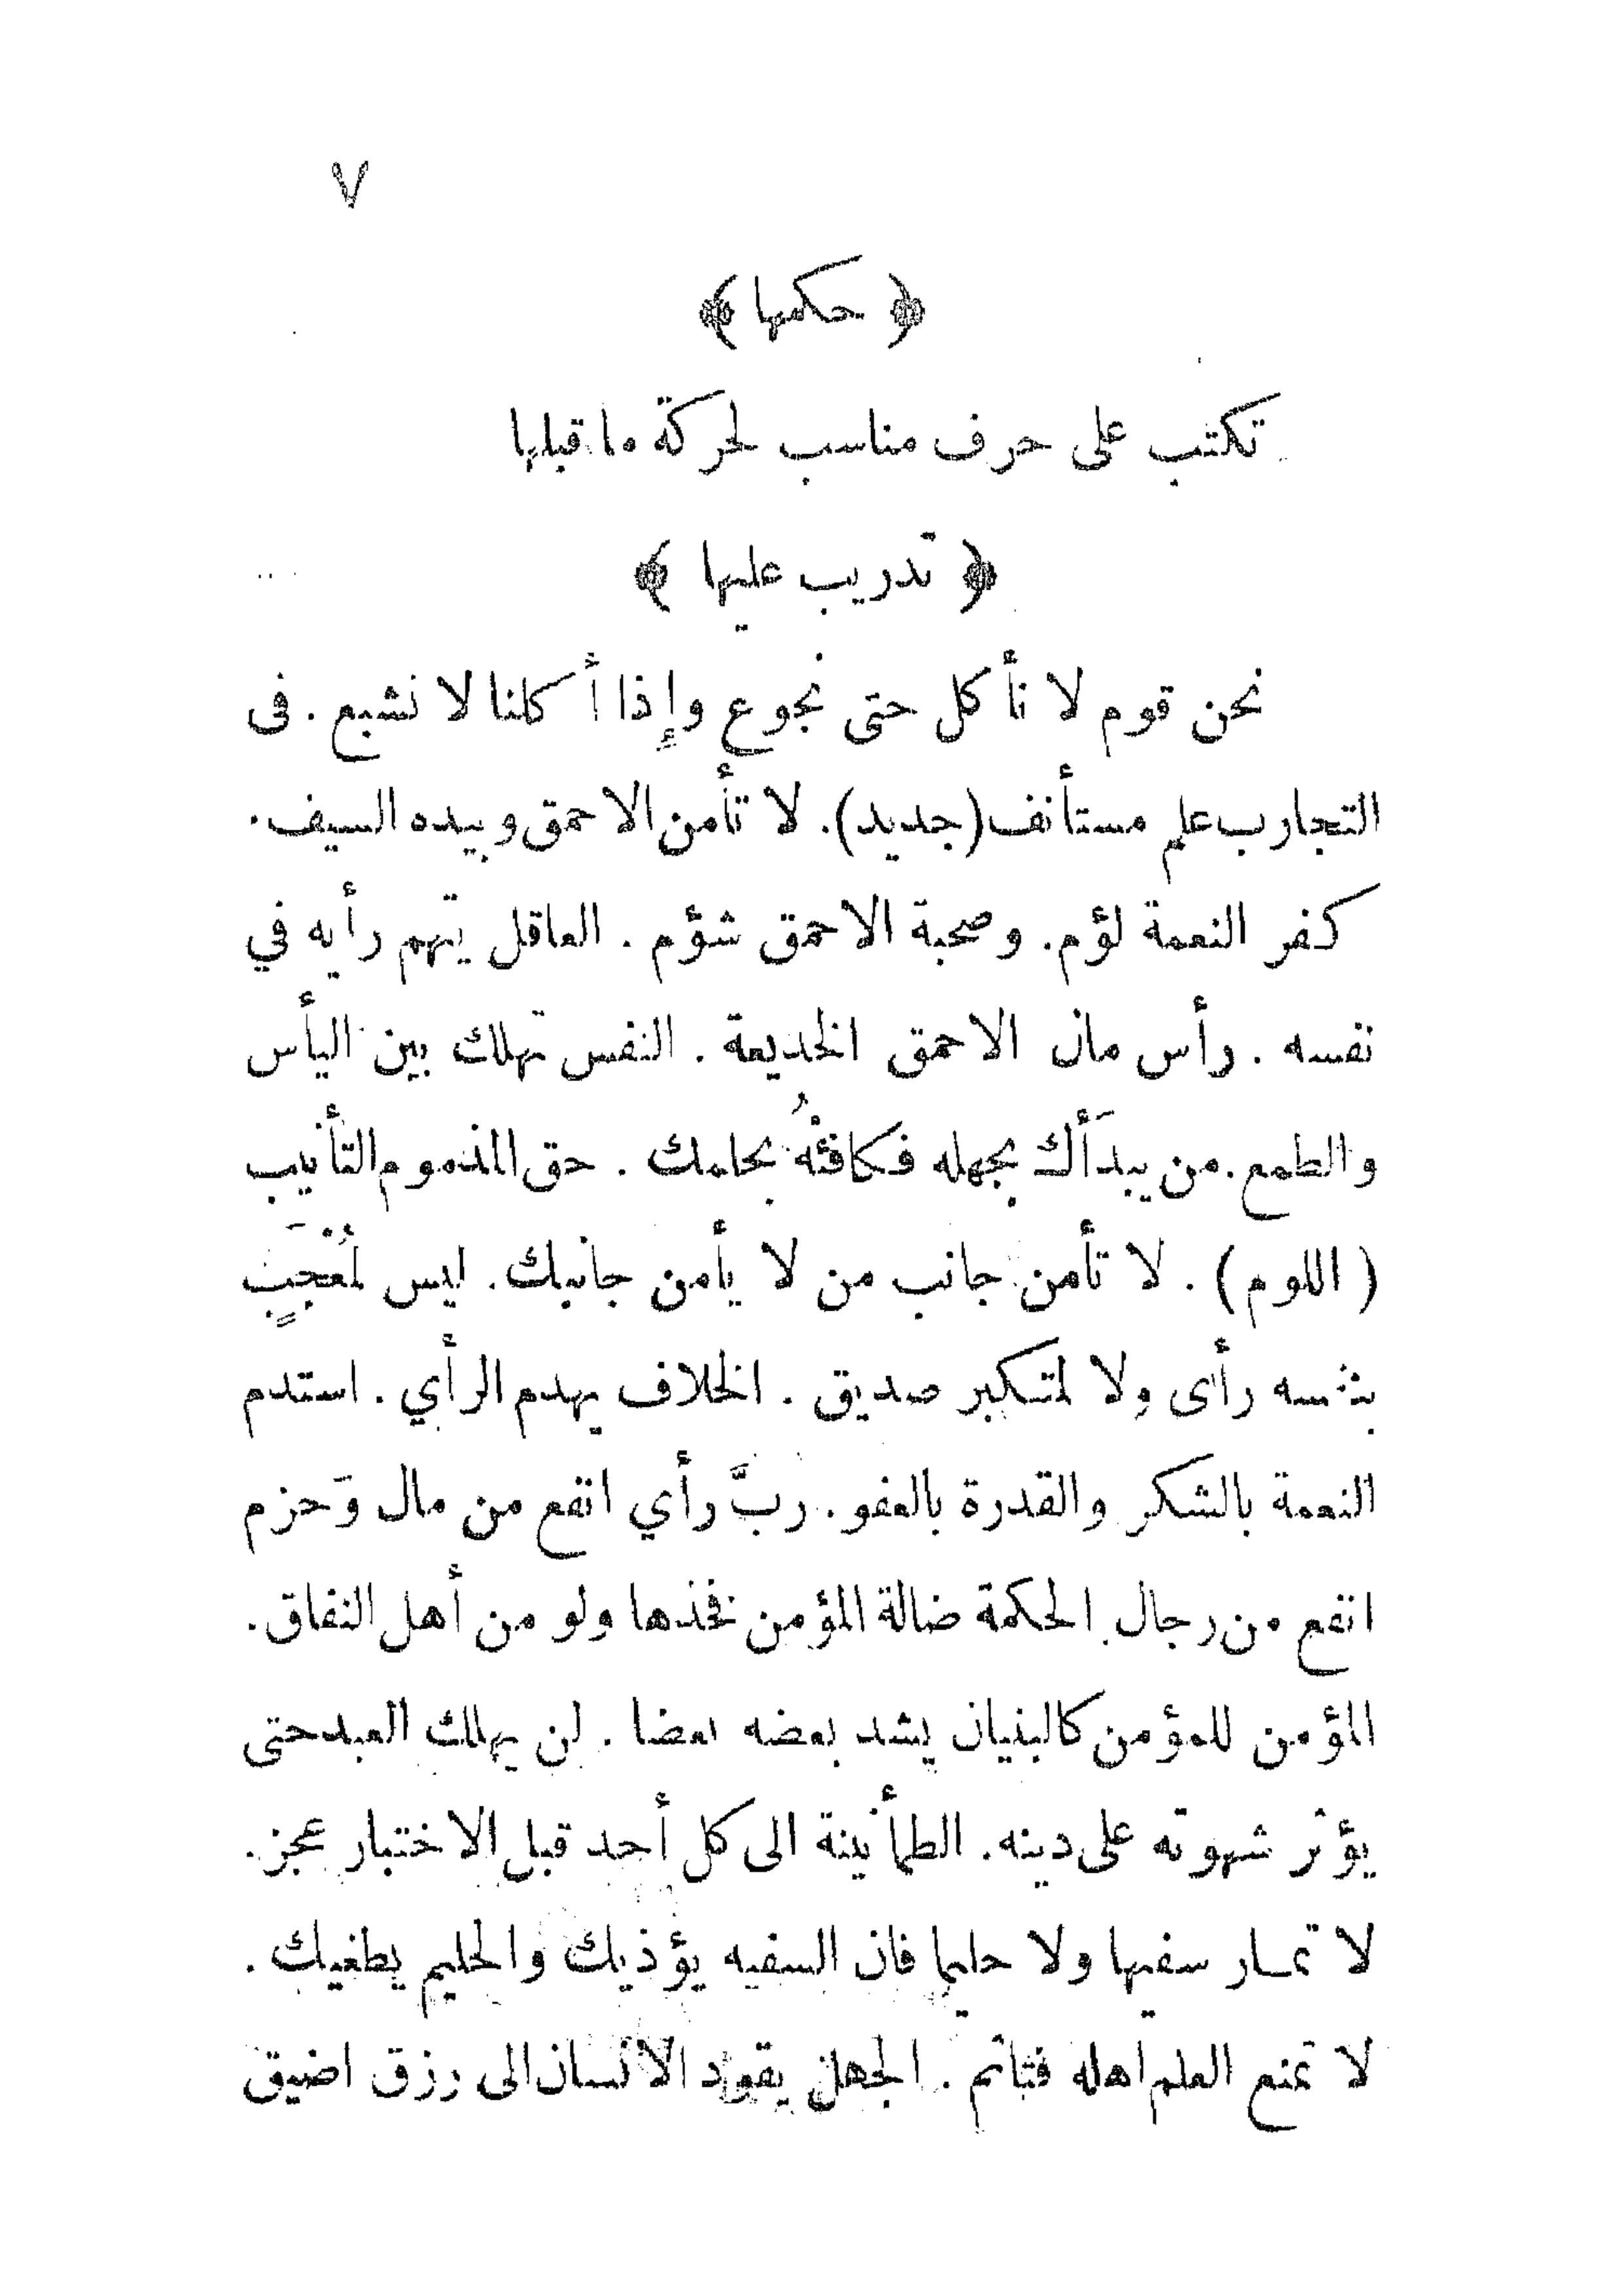 ٧
﴿ حكمها ﴾
تكتب على حرف مناسب لحركة ما قبلها
﴿ تدريب عليها ﴾
نحن قوم لا نأكل حتى نجوع وإِذا أكلنا لا نشبع . فى
التجارب علم مستأنف (جديد). لا تأمن الاحمق وبيده السيف.
كفر النعمة لؤم. وصحبة الاحمق شؤم . العاقل يتهم رأيه في
نفسه . رأس مال الاحمق الخديعة . النفس تهلك بين اليأس
والطمع. من يبدَأك بجهله فكافئْهُ بحلمك . حق المذموم التأنيب
( اللوم ) . لا تأمن جانب من لا يأمن جانبك . ليس لمُعْجَبٍ
بنفسه رأى ولا لمتكبر صديق . الخلاف يهدم الرأي . استدم
النعمة بالشكر والقدرة بالعفو . ربَّ رأي انفع من مال وَحزم
انفع من رجال. الحكمة ضالة المؤمن فخذها ولو من أهل النفاق.
المؤمن للمؤمن كالبنيان يشد بعضه بعضا . لن يهلك العبد حتى
يؤثر شهوته على دينه. الطمأنينة الى كل أحد قبل الاختبار عجز.
لا تمار سفيها ولا حليما فان السفيه يؤذيك والحليم يطغيك .
لا تمنع العلم اهله فتاثم . الجهل يقود الانسان الى رزق اضيق